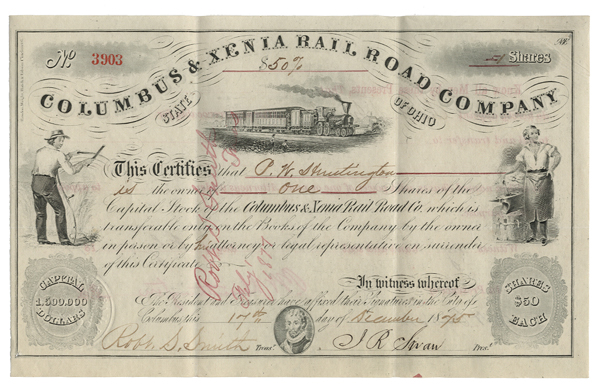 No 3903
COLUMBUS & XENIA RAIL ROAD COMPANY
$50%
Shares
STATE OF OHIO
This Certifies that P. W. Huntington
is the owner of one Shares of the
Capital Stock of the Columbus & Xenia Rail Road Co. which is
transferable only on the Books of the Company by the owner
in person or by his attorney or legal representative on surrender
of this Certificate
In witness whereof
The President and Treasurer have affixed their Signatures in the City of
Columbus this 17th day of December 1875
CAPITAL
1.500.000
DOLLARS
SHARES
$50
EACH
Robt. S. Smith Treasr.
J R Swan Prest.